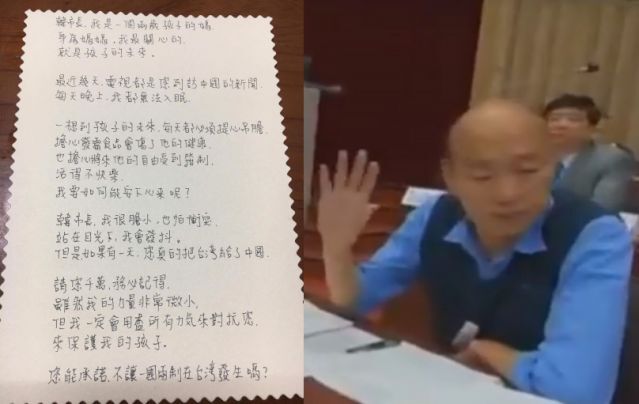 韓市長,我是一個兩歲孩子的媽
身為媽媽,我最關心的,
就是孩子的未來。
最近幾天,電視都是您到訪中國的新聞,
每天晚上,我都無法入眠.
一想到孩子的未來,每天都必須提心吊膽,
擔心毒食品會傷了他的健康,
也擔心將來他的自由受到箝制,
活得不快樂.
我要如何能安下心來呢?
韓市長,我很膽小,也怕衝突,
站在目光下,我會發抖。
但是如果有一天,您真的把台灣給了中國.
請您千萬,務必記得,
雖然我的力量非常微小,
但我一定會用盡所有力氣來對抗您,
來保護我的孩子.
您能承諾,不讓一國兩制在台灣發生嗎?